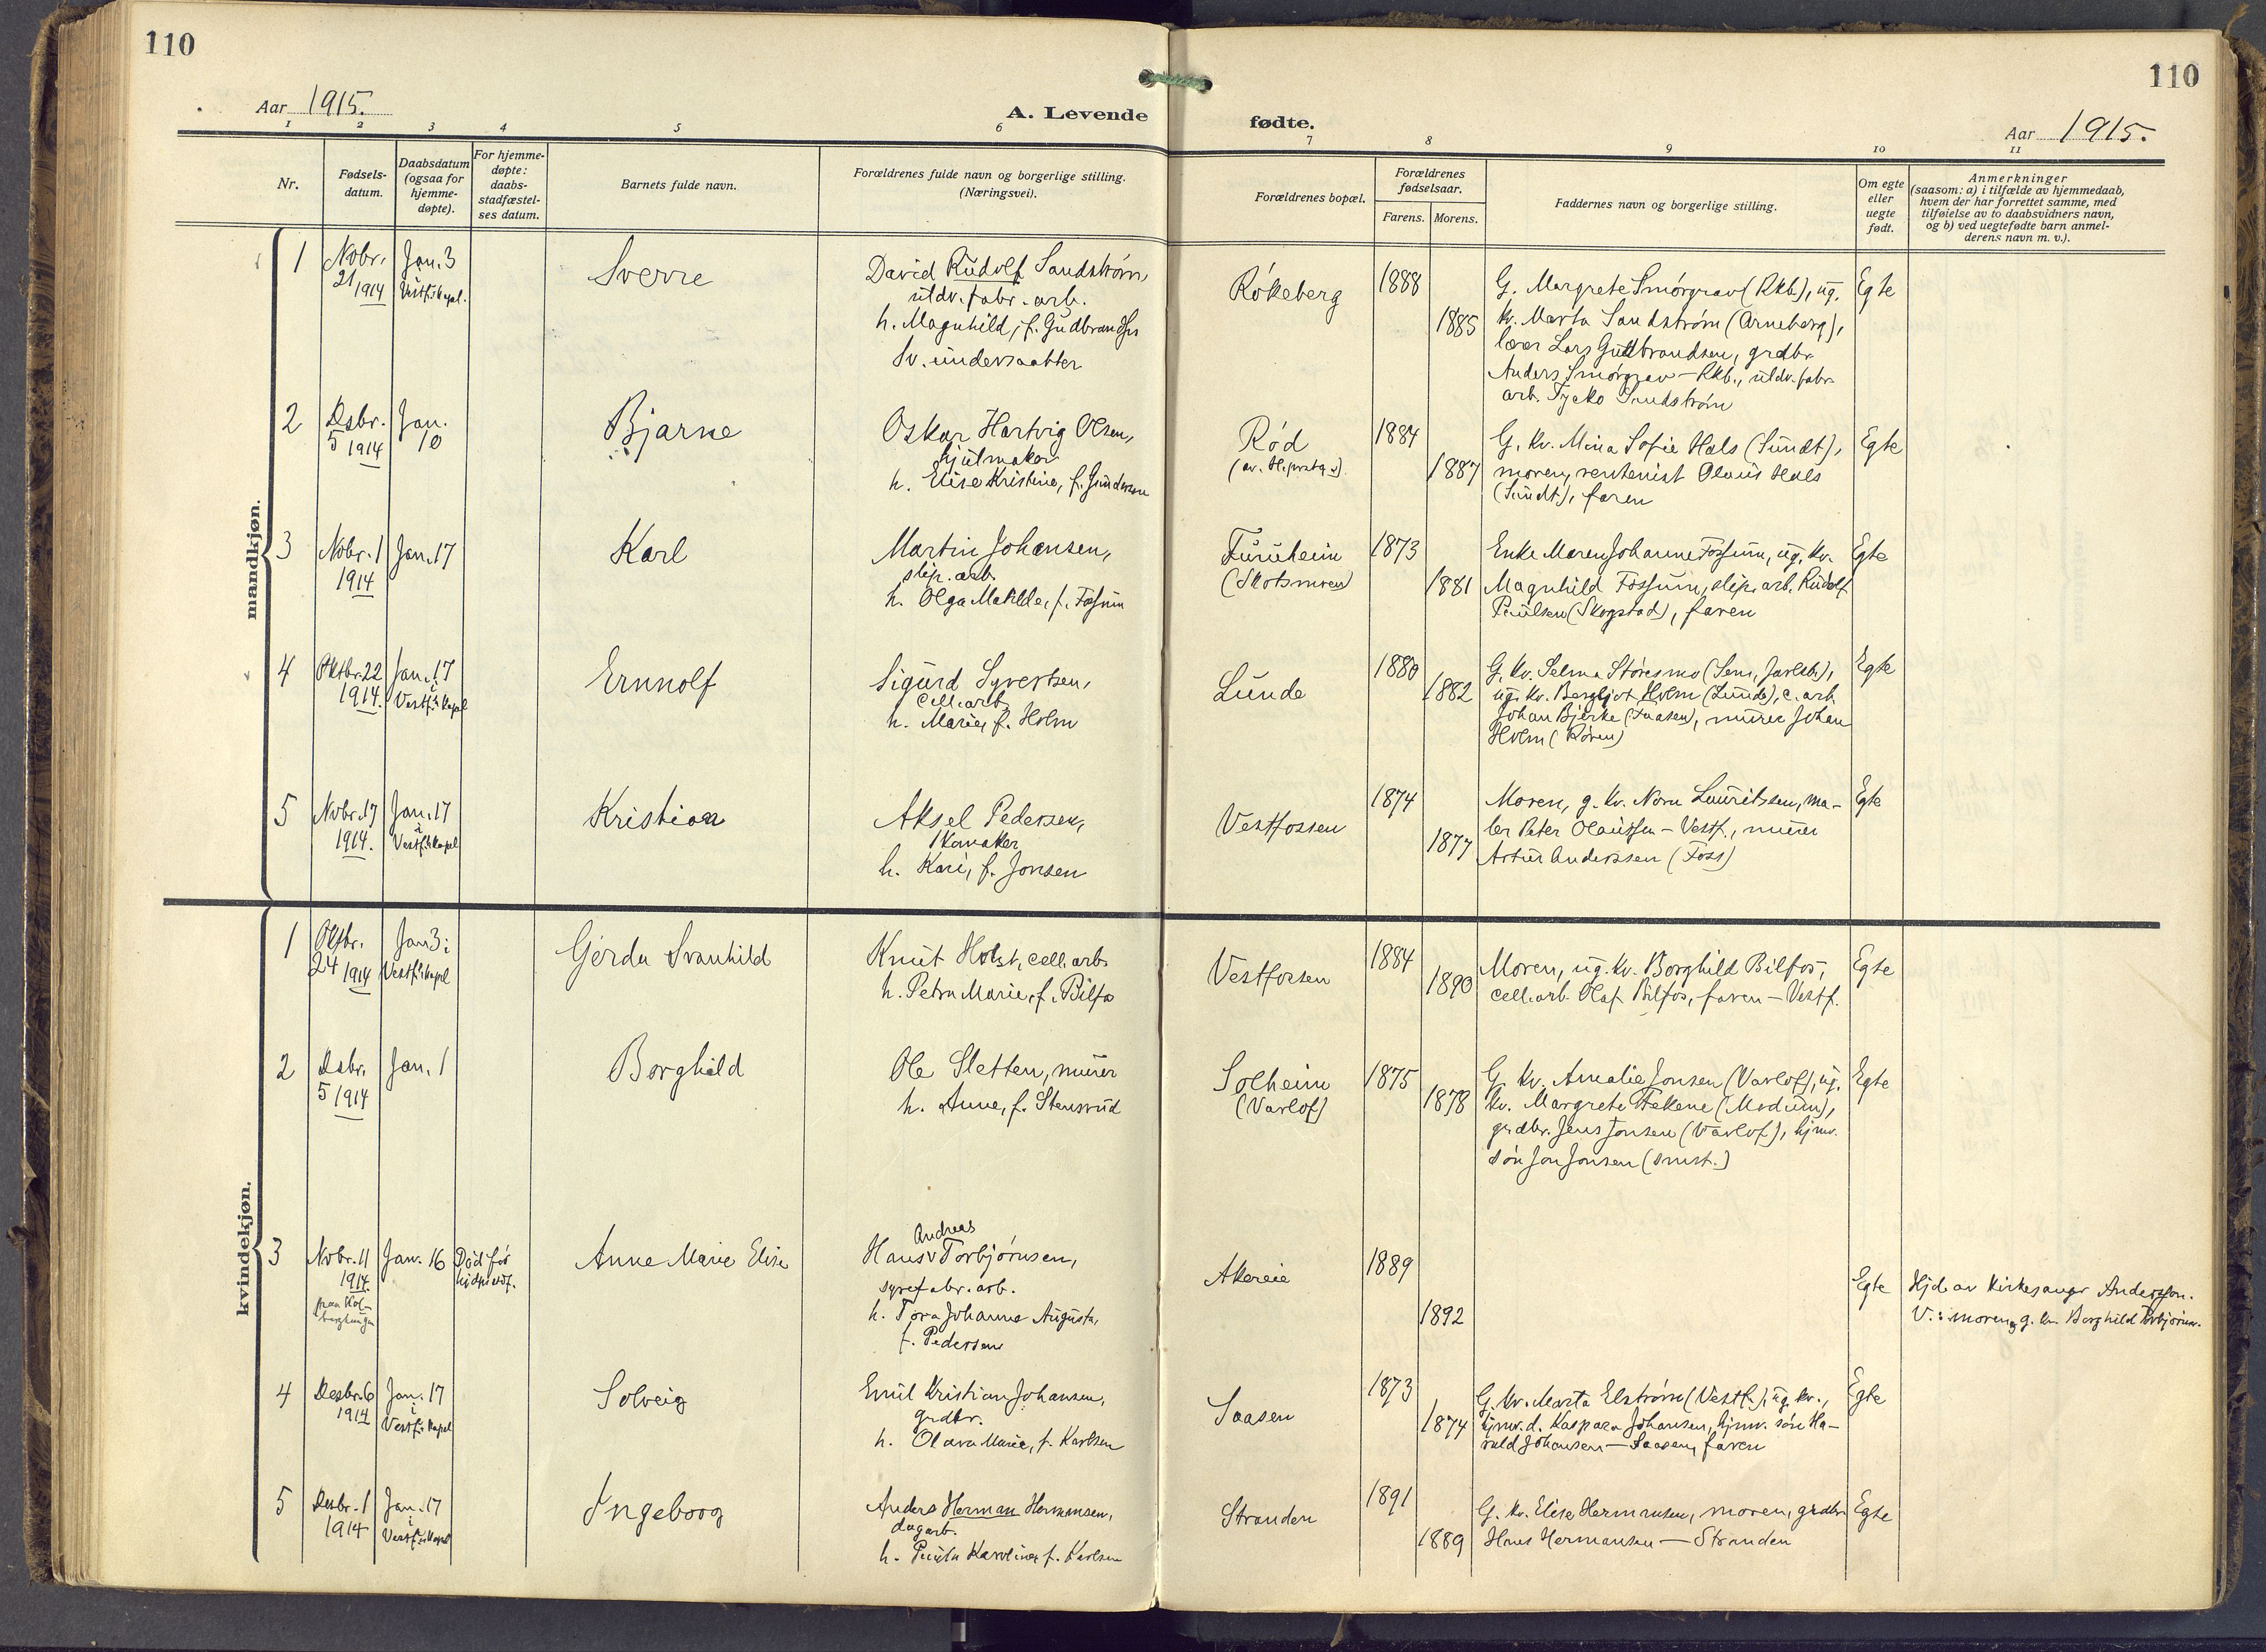 110
110
Aar 1915.
A. Levende
fødte.
Aar 1915.
1 2 3 4 5 6 7 8 9 10 11
Nr.
Fødsels-
datum.
Daabsdatum
(ogsaa for
hjemme-
døpte).
For hjemme-
døpte:
daabs-
stadfæstel-
ses datum.
Barnets fulde navn.
Forældrenes fulde navn og borgerlige stilling.
(Næringsvei).
Forældrenes bopæl.
Forældrenes
fødselsaar.
Farens. Morens.
Faddernes navn og borgerlige stilling.
Om egte
eller
uegte
født.
Anmerkninger
(saasom: a) i tilfælde av hjemmedaab,
hvem der har forrettet samme, med
tilføielse av to daabsvidners navn,
og b) ved uegtefødte barn anmel-
derens navn m. v.).
mandkjøn.
1
Nobr.
21 1914
Jan. 3
i
Vestf.s kapel.
Sverre
David Rudolf Sandstrøm,
utdv. fabr. arb.
h. Magnhild, f. Gudbrandsen
Sv. undersaatter
Røkeberg
1888
1885
G. Margrete Smørgrav (Rkb.), ug.
kv. Marta Sandstrøm (Arneberg),
lærer Lars Gudbrandsen, grdbr.
Anders Smørgrav - Rkb., utdv. fabr.
arb. Sandstrøm
Egte
2
Dsbr.
5 1914
Jan.
10
Bjarne
Oskar Hartvig Olsen,
hjulmaker
h. Elise Kristine, f. Gundersen
Rød
1884
1887
G. kv. Mina Sofie Hals (Sundt),
moren, rentenist Olaus Hals
(Sundt), faren
Egte
3
Nobr. 1
1914
Jan. 17
Karl
Martin Johansen,
slip. arb.
h. Olga Matilde, f. Fossum
Furuheim
(Skotsmoen)
1873
1881
Enke Maren Johanne Fossum, ug. kv.
Magnhild Fossum, slip. arb. Rudolf
Paulsen (Skogstad), faren
Egte
4
Oktbr. 22
1914.
Jan. 17
i
Vestf.s kapel
Ernnolf
Sigurd Syvertsen,
cell. arb.
h. Marie, f. Holm
Lunde
1880
1882
G. kv. Selma Støresmo (Sem, Jarlsb.),
ug. kv. Bergljot Holm (Lunde), c. arb.
Johan Bjerke (Faasen), murer Johan
Holm (Røren)
Egte
5
Nobr. 17
1914.
Jan. 17
i
Vestf.s kapel
Kristian
Aksel Pedersen,
skomaker
h. Kari, f. Jonsen
Vestfossen
1874
1877
Moren, g. kv. Nora Lauritssen, ma-
ler Peter Olaussen - Vestf., murer
Artur Anderssen (Foss)
Egte
kvindekjøn.
1
Oktbr.
24 1914
Jan 3 i
Vestf.s kapel
Gerda Svanhild
Knut Holst, cell. arb.
h. Petra Marie, f. Bilfos
Vestfossen
1884
1890
Moren, ug. kv. Borghild Bilfos,
cell. arb. Olaf Bilfos, faren - Vestf.
Egte
2
Dsbr.
5 1914
Jan. 1
Borghild
Ole Sletten, murer
h. Anne, f. Stensrud
Solheim
(Varlof)
1875
1878
G. kv. Amalie Jonsen (Varlof), ug.
kv. Margrete Fekene (Modum),
grdbr. Jens Jonsen (Varlof), hjmv.
søn Jon Jonsen (smst.)
Egte
3
Nobr. 11
1914.
Jan. 16
Død før
Anne Marie Elise
Andreas
Hans v Torbjørnsen,
syrefabr. arb.
h. Tora Johanne Augusta,
f. Pedersen
Akereie
1889
1892
Egte
Hjd. av kirkesanger Anderssen.
V.: moren og g. kv. Borghild Torbjørnsen.
4
Desbr. 6
1914
Jan. 17
i
Vestf.s kapel
Solveig
Emil Kristian Johansen,
grdbr.
h. Olava Marie, f. Karlsen
Saasen
1873
1874
G. kv. Marta Elstrøm (Vestf.), ug. kv.,
hjmv. d. Kaspara Johansen, hjmv. søn Ha-
rald Johansen - Saasen, faren
Egte
5
Desbr. 1
1914
Jan. 17
i
Vestf.s kapel
Ingeborg
Anders Herman Hermansen,
dagarb.
h. Paula Karoline, f. Karlsen
Stranden
1891
1889
G. kv. Elise Hermansen, moren, grdbr.
Hans Hermansen - Stranden
Egte